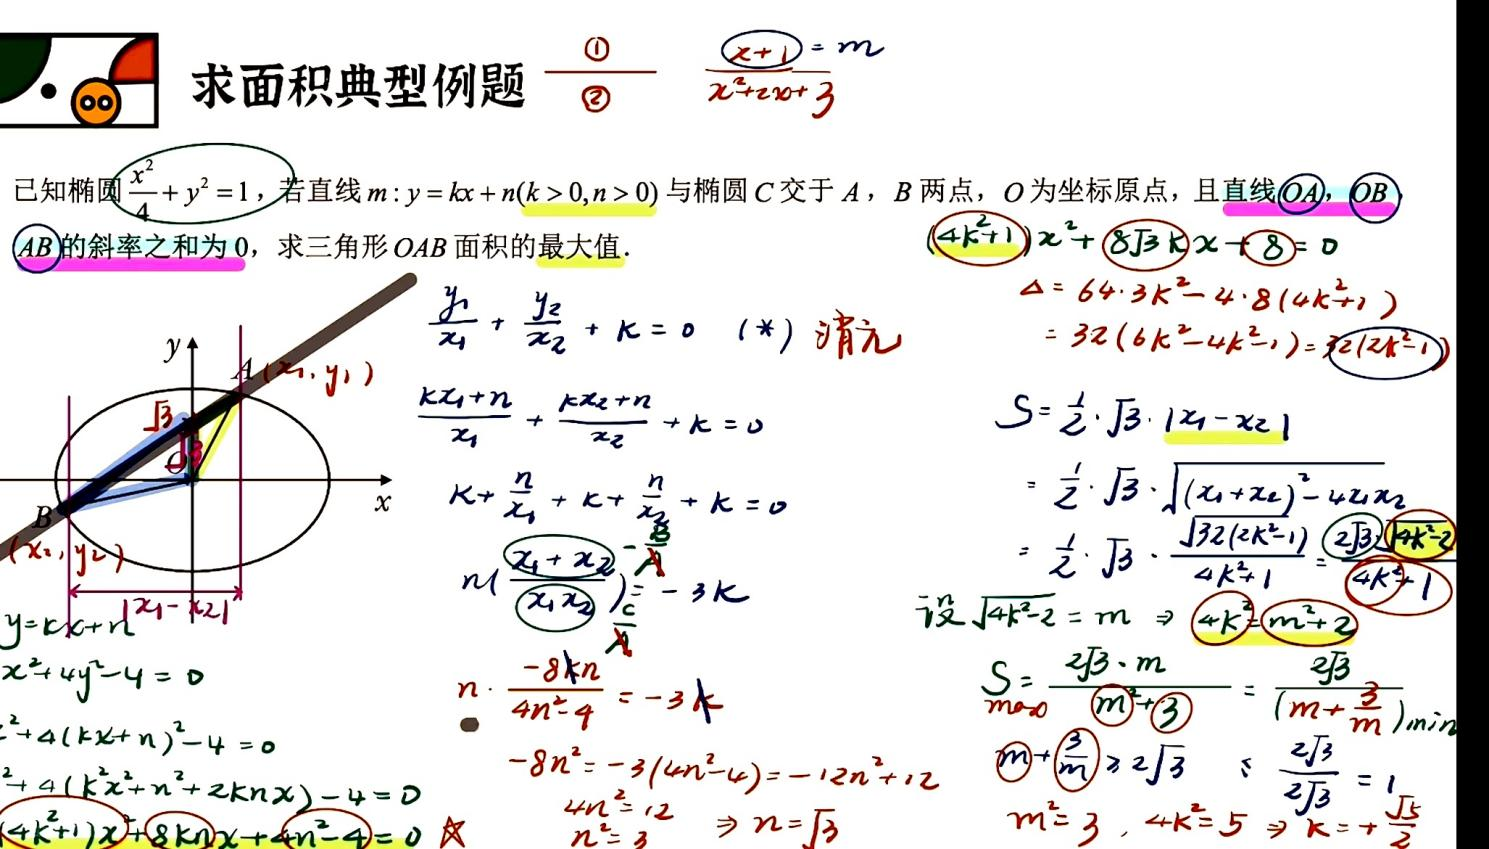 求面积典型例题
①
②
x+1 = m
x²+2x+3
已知椭圆 x²/4 + y² = 1，若直线 m : y = kx + n(k > 0, n > 0) 与椭圆 C 交于 A，B 两点，O 为坐标原点，且直线 OA，OB，
AB 的斜率之和为 0，求三角形 OAB 面积的最大值．
y
A (x₁, y₁)
√3
√3
O
x
B
(x₂, y₂)
|x₁ - x₂|
y=kx+n
x²+4y²-4=0
²+4(kx+n)²-4=0
²+4(k²x²+n²+2knx)-4=0
(4k²+1)x²+8knx+4n²-4=0 ☆
y₁/x₁ + y₂/x₂ + k = 0 (*) 消元
(kx₁+n)/x₁ + (kx₂+n)/x₂ + k = 0
k + n/x₁ + k + n/x₂ + k = 0
n((x₁+x₂)/(x₁x₂)) = -3k
-B/A
C/A
n · (-8kn)/(4n²-4) = -3k
-8n² = -3(4n²-4) = -12n²+12
4n²=12
n²=3 ⇒ n=√3
(4k²+1)x² + 8√3kx + 8 = 0
Δ = 64·3k² - 4·8(4k²+1)
= 32(6k²-4k²-1) = 32(2k²-1)
S = 1/2 · √3 · |x₁-x₂|
= 1/2 · √3 · √((x₁+x₂)²-4x₁x₂)
= 1/2 · √3 · √(32(2k²-1))/(4k²+1) = 2√3·√(4k²-2)/(4k²+1)
设 √(4k²-2) = m ⇒ 4k² = m²+2
S max = 2√3·m/(m²+3) = 2√3/(m+3/m)min
m+3/m ≥ 2√3 ≤ 2√3/2√3 = 1
m²=3, 4k²=5 ⇒ k=+√5/2